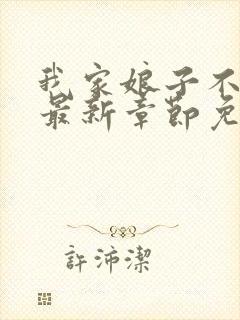 我家娘子不
最新章節免
許沛潔